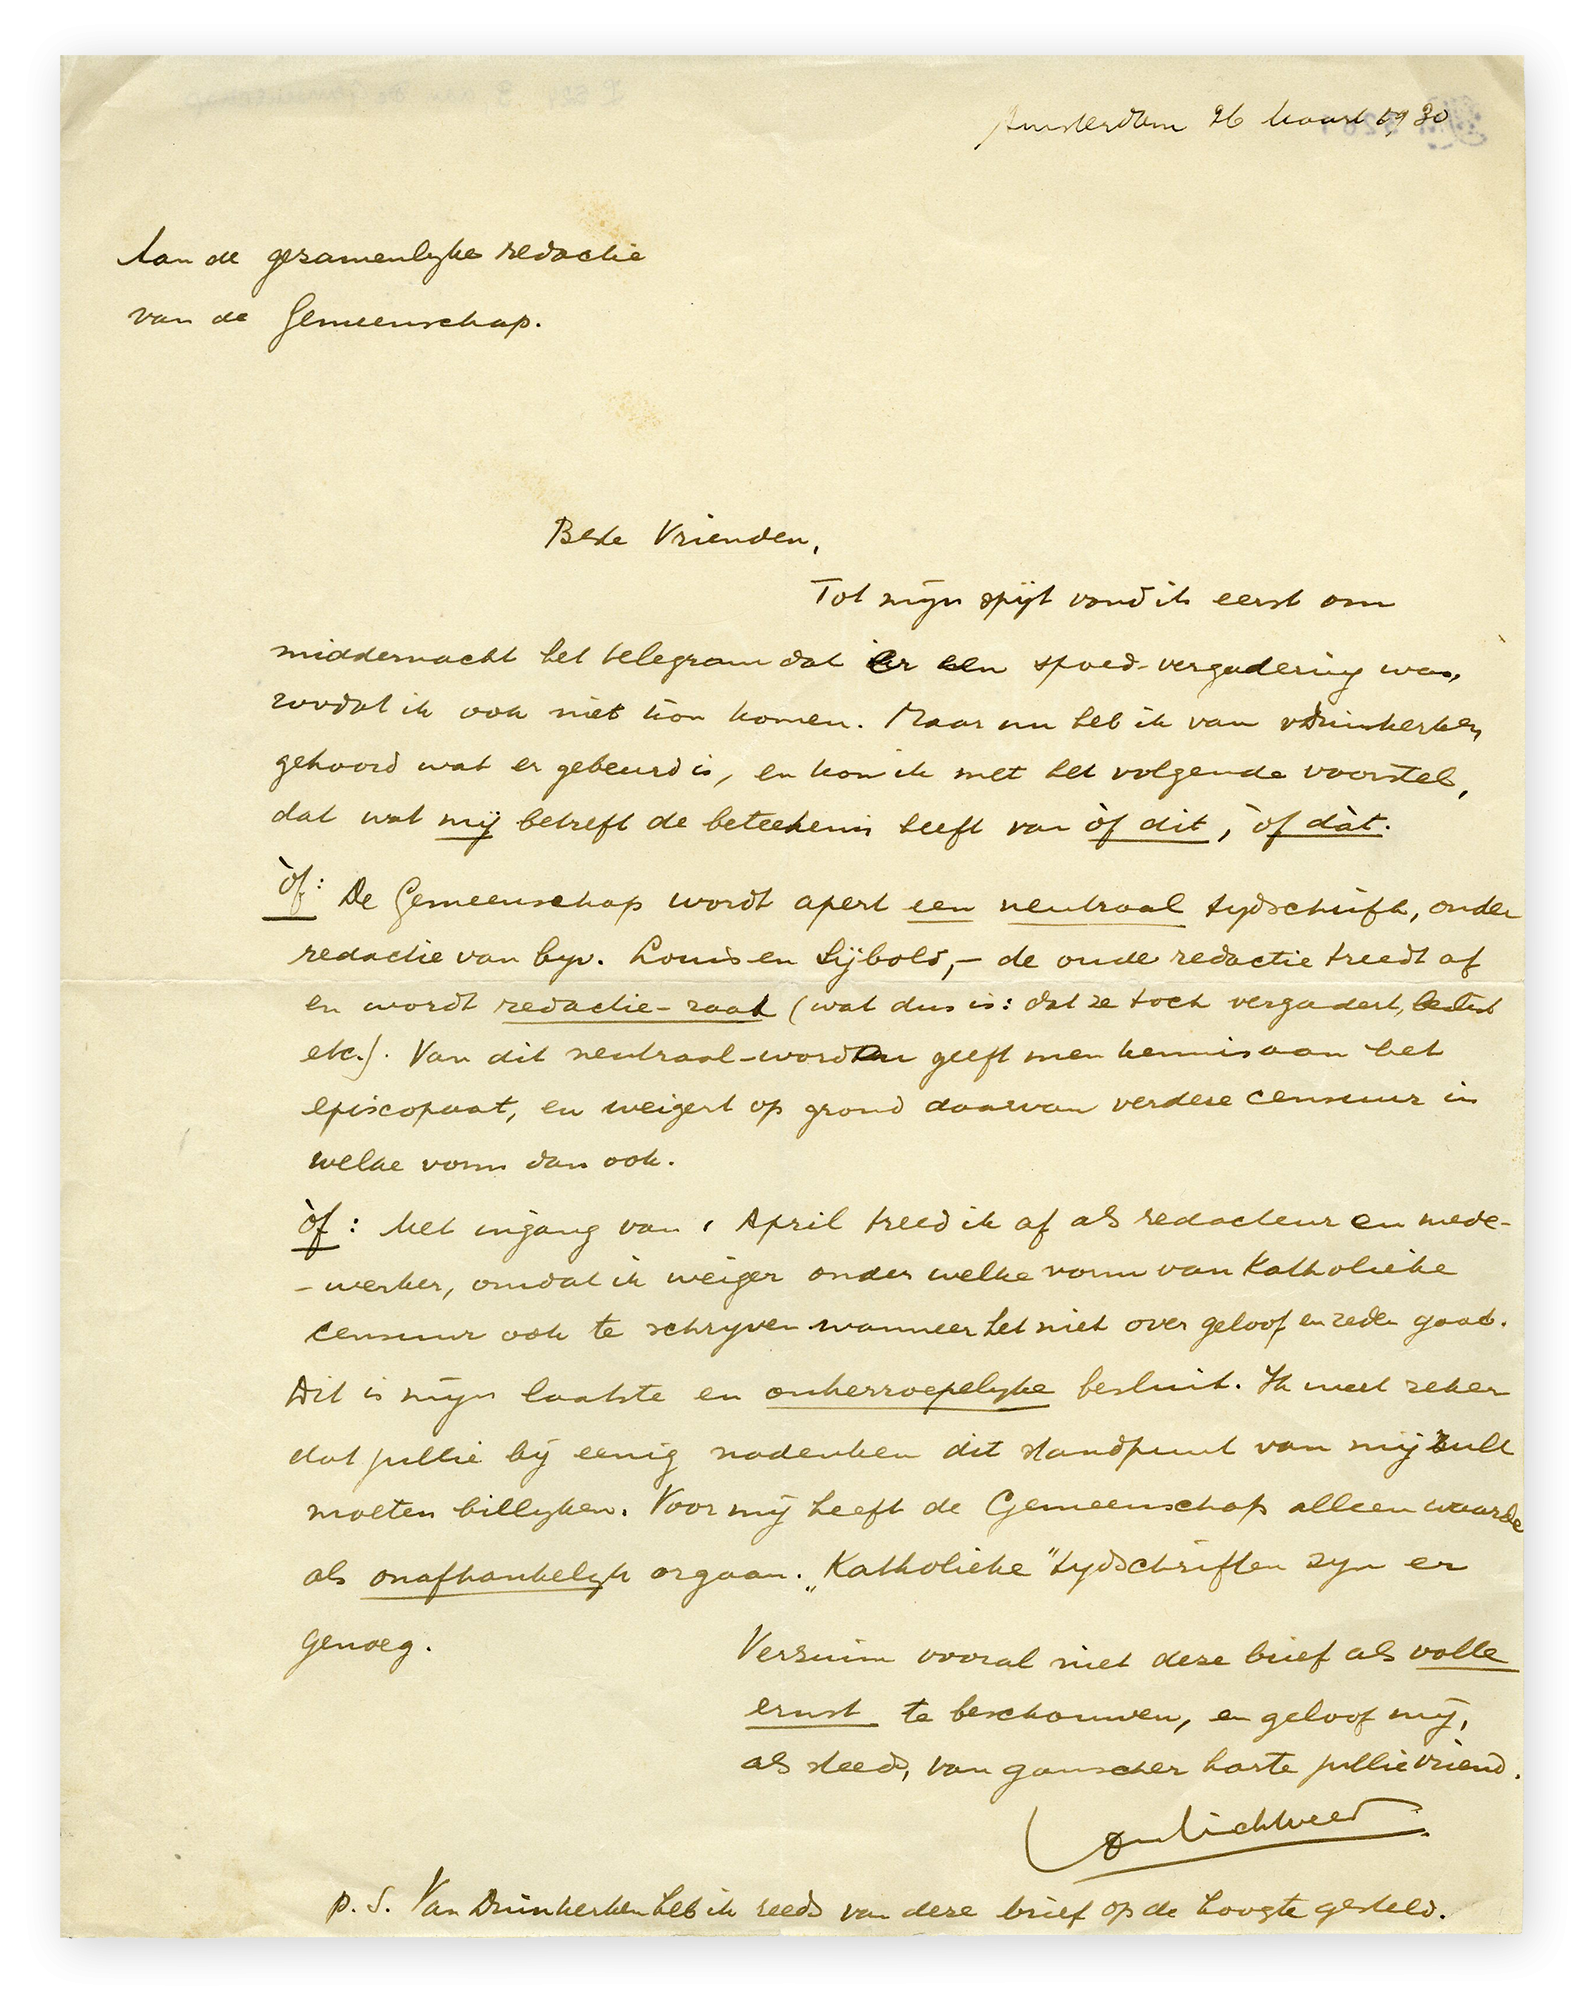 Amsterdam 26 Maart 1930
Aan de gezamenlyke redactie
van de Gemeenschap.
Beste Vrienden,
Tot mijn spijt vond ik eerst om
middernacht het telegram dat er een spoed-vergadering was,
zoodat ik ook niet kon komen. Maar nu heb ik van v Duinkerken
gehoord wat er gebeurd is, en kom ik met het volgende voorstel,
dat wat mij betreft de beteekenis heeft van òf dit, òf dàt.
òf: De Gemeenschap wordt apert een neutraal tydschrift, onder
redactie van byv. Louis en Sijbold, – de oude redactie treedt af
en wordt redactie-raad (wat dus is: dat ze toch vergadert,
etc.). Van dit neutraal-worden geeft men kennis aan het
episcopaat, en weigert op grond daarvan verdere censuur in
welke vorm dan ook.
òf: Met ingang van 1 April treed ik af als redacteur en mede-
-werker, omdat ik weiger onder welke vorm van Katholieke
censuur ook te schryven wanneer het niet over geloof en zeden gaat.
Dit is mijn laatste en onherroepelyke besluit. Ik weet zeker
dat jullie bij eenig nadenken dit standpunt van mij zult
moeten billyken. Voor mij heeft de Gemeenschap alleen waarde
als onafhankelyk orgaan. „Katholieke" tydschriften zyn er
genoeg.
Verzuim vooral niet deze brief als volle
ernst te beschouwen, en geloof mij,
als steeds, van ganscher harte jullie vriend.
p. S. Van Duinkerken heb ik reeds van deze brief op de hoogte gesteld.